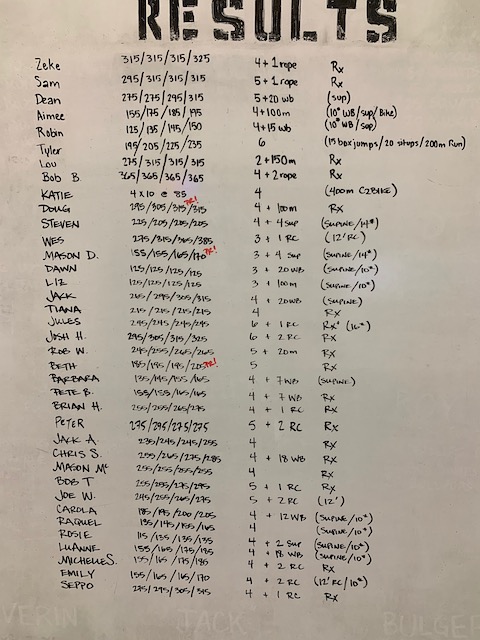 RESULTS
Zeke 315/315/315/325 4 + 1 rope Rx
Sam 295/315/315/315 5 + 1 rope Rx
Dean 275/275/295/315 5 + 20 wb (sup)
Aimee 155/175/185/195 4 + 100m (10# WB/sup/Bike)
Robin 125/135/145/150 4 + 15 wb (10# WB/sup)
Tyler 195/205/225/235 6 (15 box jumps/20 situps/200m Run)
Lou 275/315/315/315 2 + 150m Rx
Bob B. 365/365/365/365 4 + 2 rope Rx
KATIE 4 x 10 @ 85 4 (400m C2BIKE)
DOUG 295/305/315/315 PR! 4 + 100m Rx
STEVEN 225/205/205/205 4 + 4 sup (SUPINE/14#)
WES 275/315/365/385 3 + 1 RC (12' RC)
MASON D. 155/155/165/170 PR! 3 + 4 sup (SUPINE/14#)
DAWN 125/125/125/125 3 + 20 WB (SUPINE/10#)
LIZ 125/125/125/125 3 + 100m (SUPINE/10#)
JACK 265/295/305/315 4 + 20WB (SUPINE)
TIANA 215/215/215/215 4 Rx
JULES 245/245/245/245 6 + 1 RC Rx+ (16#)
JOSH H. 295/305/315/325 6 + 2 RC Rx
ROB W. 245/255/265/265 5 + 20m Rx
BETH 185/195/195/205 PR! 5 Rx
BARBARA 135/145/155/165 4 + 7 WB (SUPINE)
PETE B. 155/155/165/165 4 + 7 WB Rx
BRIAN H. 255/255/265/275 4 + 1 RC Rx
PETER 275/275/275/275 5 + 2 RC Rx
JACK A. 235/245/245/255 4 Rx
CHRIS S. 255/265/275/285 4 + 18 WB Rx
MASON Mc 255/255/255/255 4 Rx
BOB T 255/255/275/295 5 + 1 RC Rx
JOE W. 245/255/265/275 5 + 2 RC (12')
CAROLA 185/195/200/205 4 + 12 WB (SUPINE/10#)
RAQUEL 135/145/155/165 4 (SUPINE/10#)
ROSIE 115/135/135/135 4 + 2 sup (SUPINE/10#)
LUANNE 155/165/175/185 4 + 18 WB (SUPINE/10#)
MICHELLE S. 155/165/175/185 4 + 2 RC Rx
EMILY 155/165/165/170 4 + 2 RC (12' RC/10#)
SEPPO 275/295/305/315 4 + 1 RC Rx
VERIN JACK BULGER